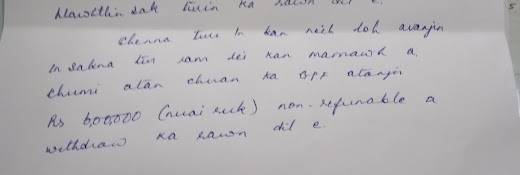 Mawhthin sak tuin ka rawn dil e.
Chenna tur In kan neih loh avangin
In sakna tur ram lei kan mamawh a,
chumi atan chuan ka GPF atangin
Rs 6,00,000 (nuai ruk) non-refunable a
withdraw ka rawn dil e.